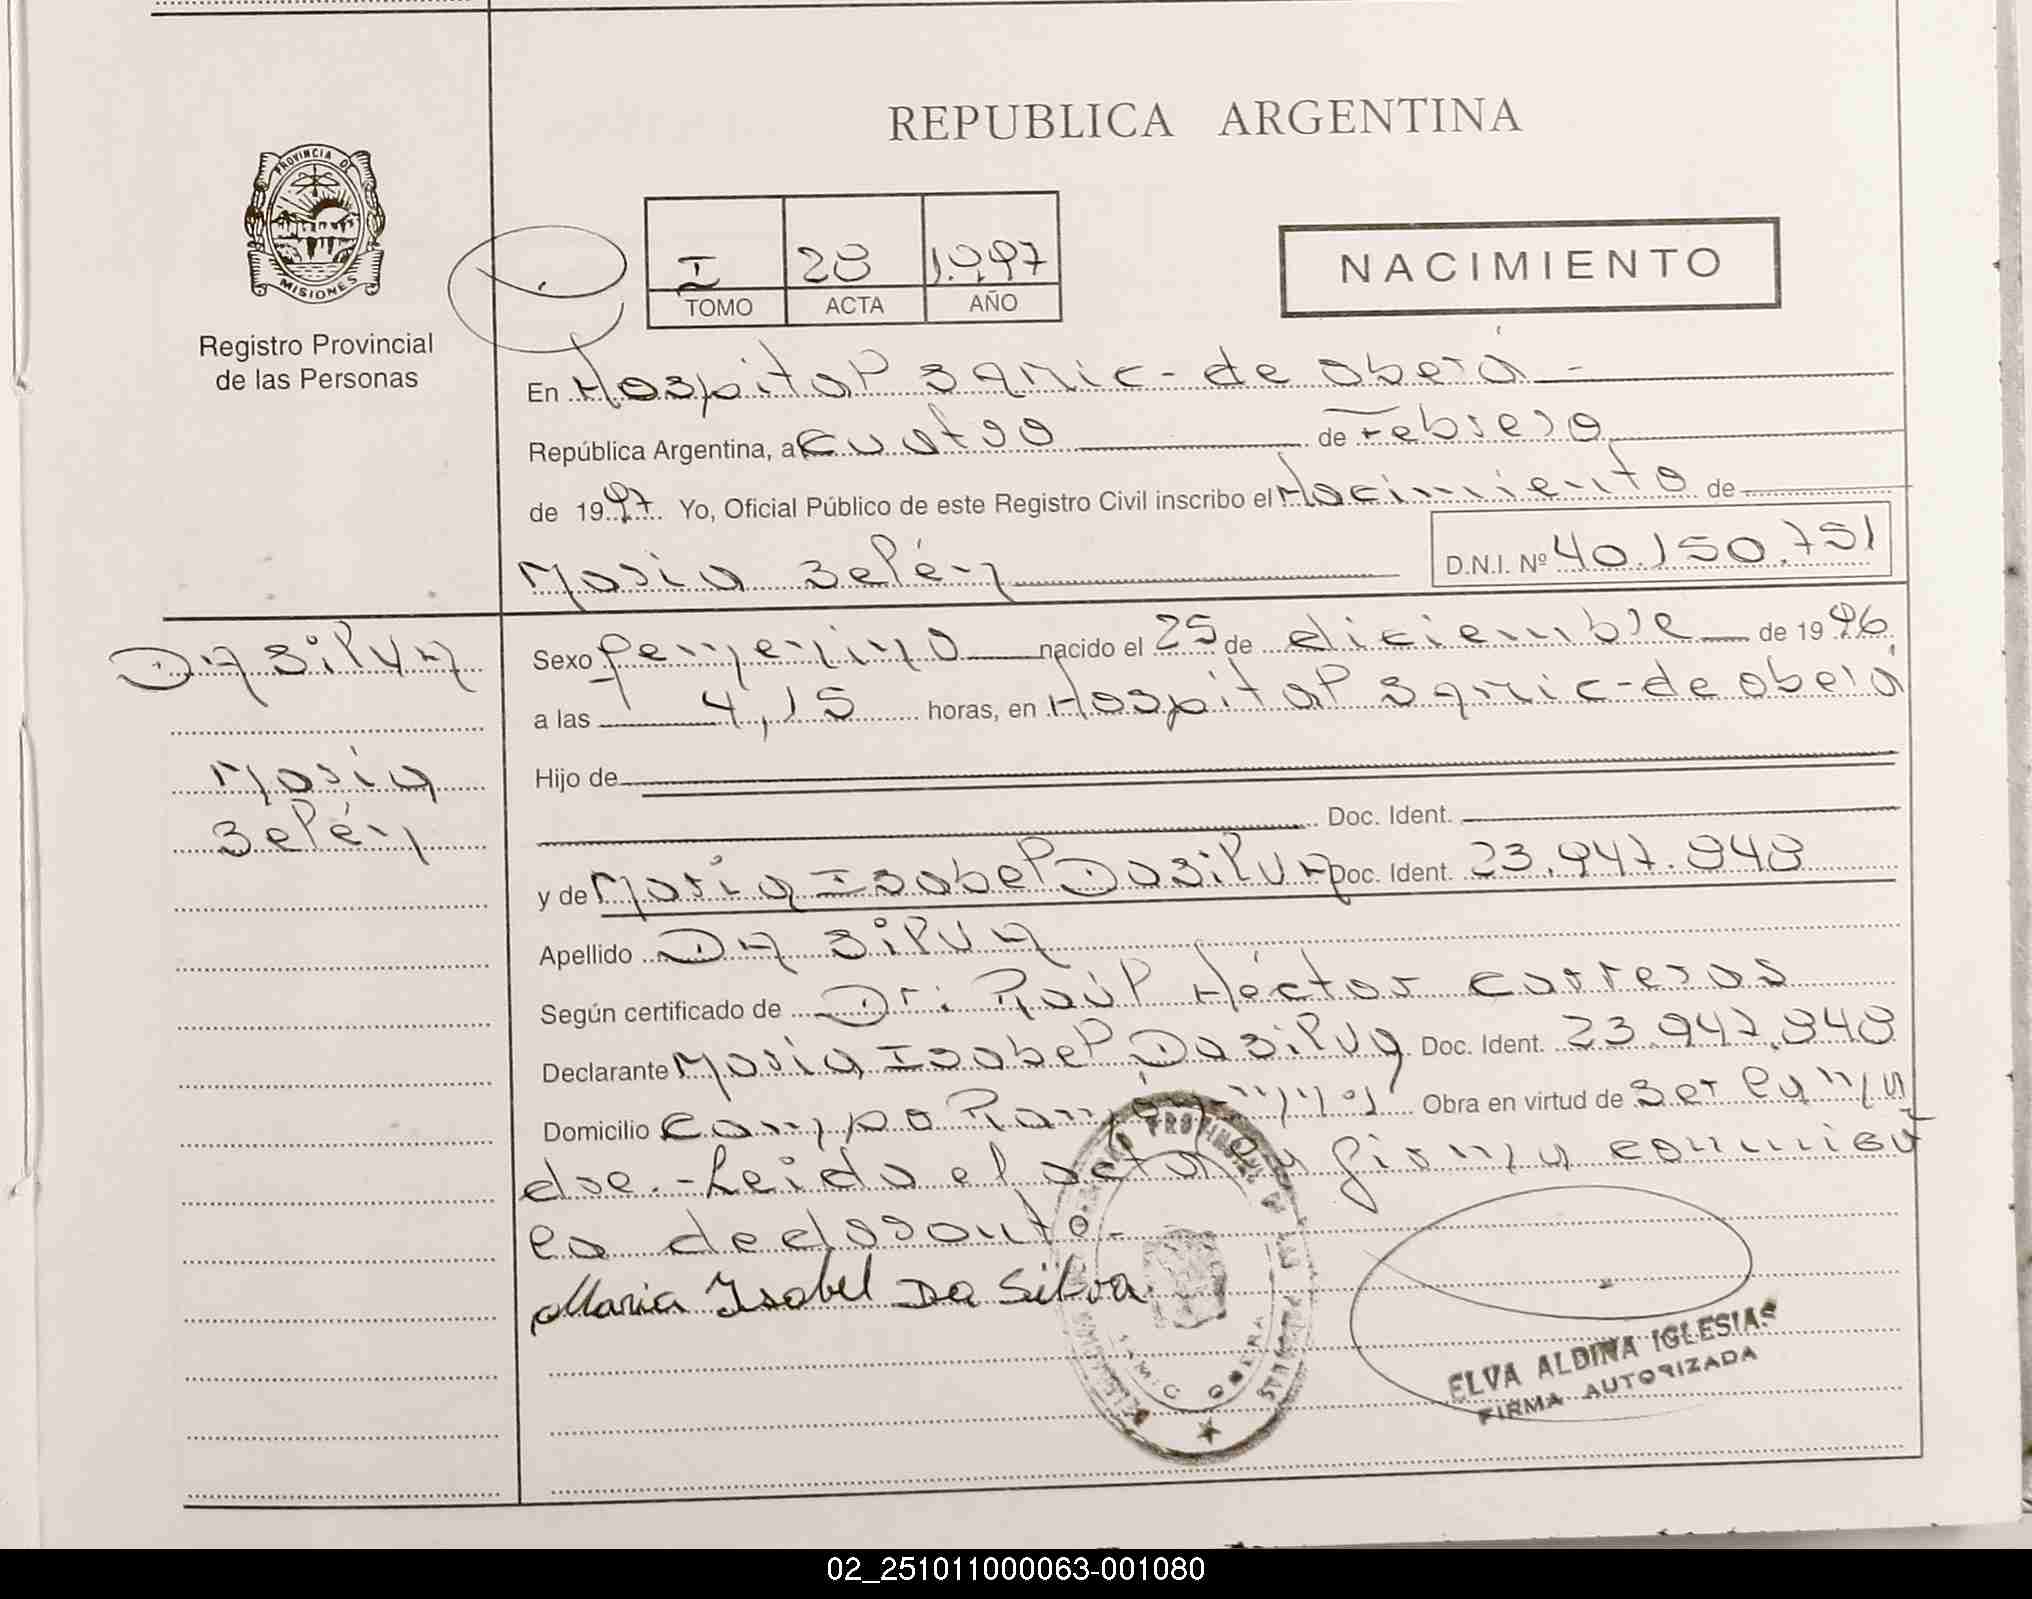 REPUBLICA ARGENTINA
PROVINCIA DE
MISIONES
Registro Provincial
de las Personas
I 28 1.997
TOMO ACTA AÑO
NACIMIENTO
En Hospital Samic - de Oberá -
República Argentina, a cuatro de Febrero
de 1997 Yo, Oficial Público de este Registro Civil inscribo el Nacimiento de
Maria Belén D.N.I. Nº 40.150.751
Da Silva
Maria
Belén
Sexo femenino nacido el 25 de diciembre de 1996
a las 4,15 horas, en Hospital Samic - de Oberá
Hijo de
Doc. Ident.
y de Maria Isabel Da Silva Doc. Ident. 23.947.848
Apellido Da Silva
Según certificado de Dr: Raúl Héctor Carreras
Declarante Maria Isabel Da Silva Doc. Ident. 23.947.848
Domicilio Campo Ramón - Obra en virtud de Ser la ma
dre. - Leida el acta, la firma conmigo
la declarante -
Maria Isabel Da Silva
PROVINCIAL DE LAS PERSONAS
SAMIC OBERA
ELVA ALDINA IGLESIAS
FIRMA AUTORIZADA
02_251011000063-001080